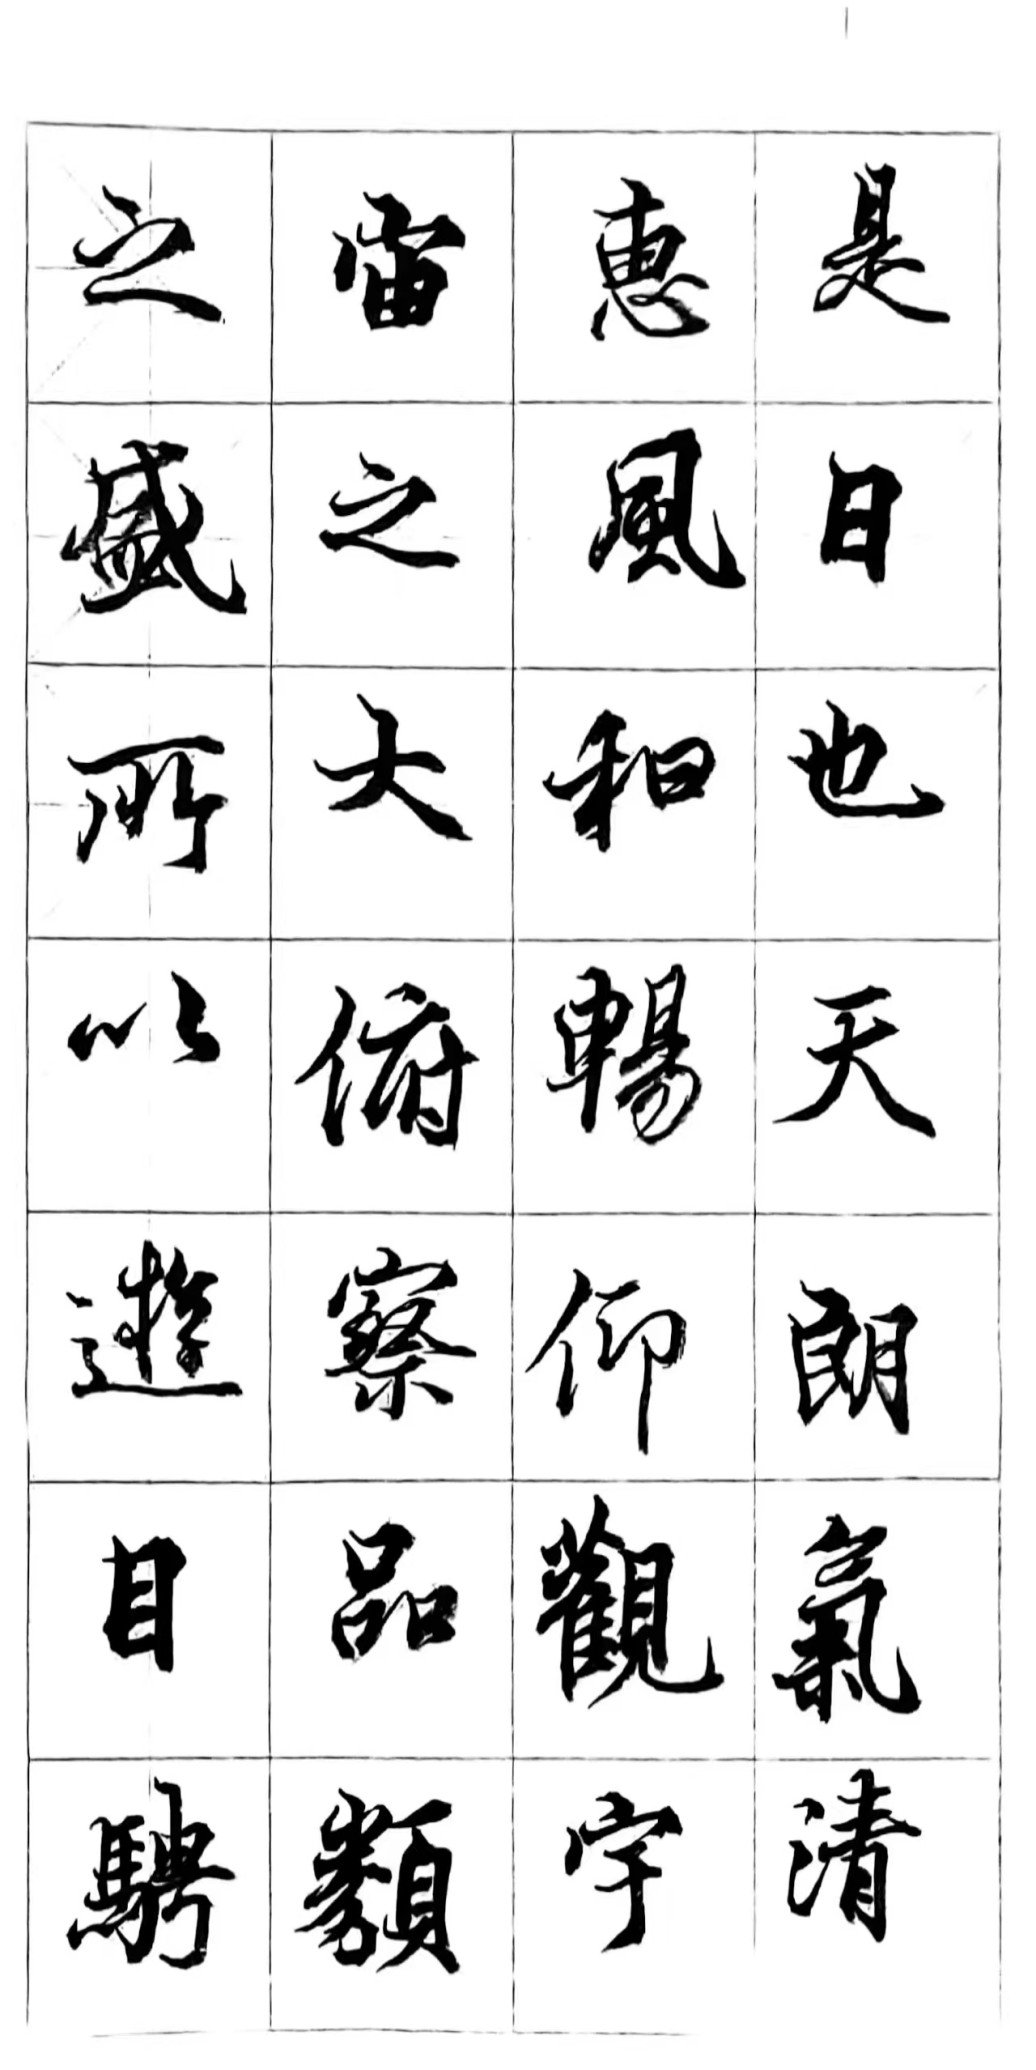 是日也天朗氣清
惠風和暢仰觀宇
宙之大俯察品類
之盛所以遊目騁